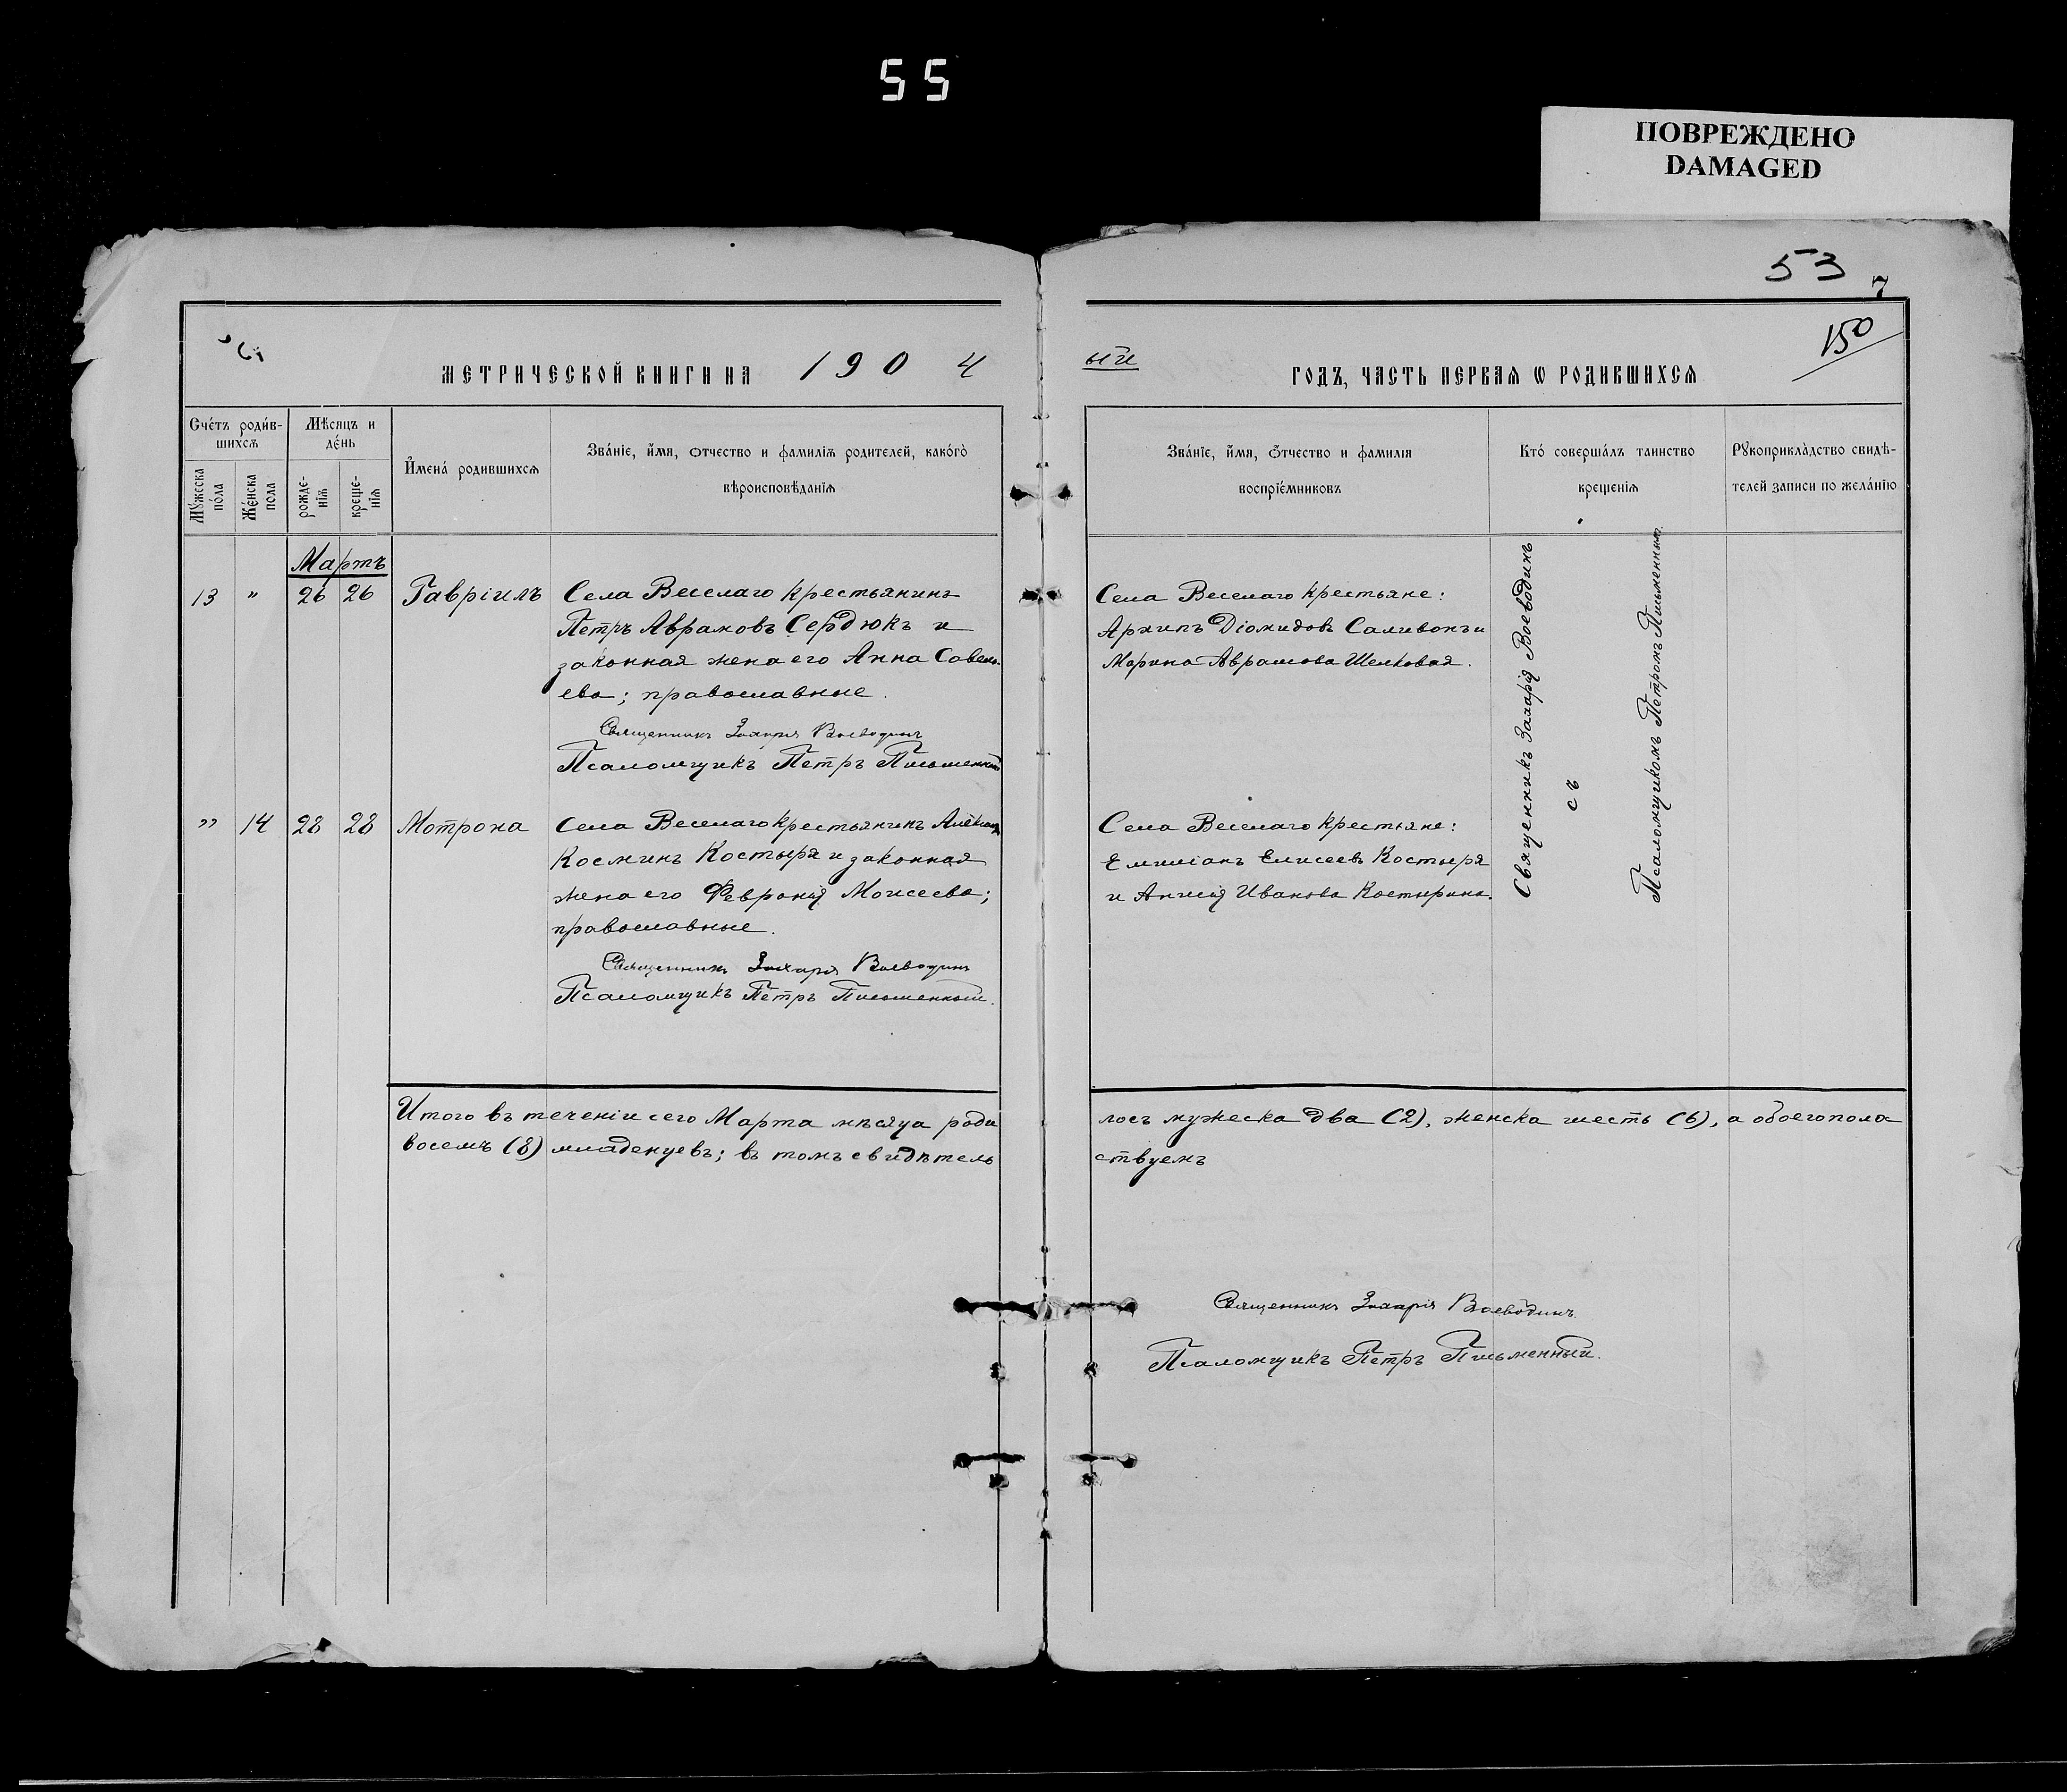 55
ПОВРЕЖДЕНО
DAMAGED
53
7
150
МЕТРИЧЕСКОЙ КНИГИ НА 1904
ый ГОДЪ, ЧАСТЬ ПЕРВАЯ Ѡ РОДИВШИХСЯ
Счéтъ роди́в-
шихсѧ
Мѣсяцъ и
дéнь
Мꙋжеска
по́ла
Жéнска
пола
рожде-
нїѧ
креще-
нїѧ
И҆мена́ родившихсѧ
Зва́нїе, и҆́мя, ѻтчество и фамилїѧ родителей, како́гѡ
вѣроисповѣ́данїѧ
Зва́нїе, и҆́мя, ѻтчество и фамилїя
воспрїе́мниковъ
Кто́ соверша́лъ таинство
крещенїѧ
Рꙋкоприкла̀дство свидѣ-
телей записи по жела́нїю
Мартъ
13 " 26 26 Гавріилъ
Села Веселаго крестьянинъ
Петръ Аврамовъ Сердюкъ и
законная жена его Анна Савель-
ева; православные.
Священникъ Захарія Воеводинъ
Псаломщикъ Петръ Письменный
Села Веселаго крестьяне:
Архипъ Діомидовъ Саливонъ и
Марина Аврамова Шелковая.
Священникъ Захарія Воеводинъ
съ
Псаломщикомъ Петромъ Письменнымъ.
" 14 28 28 Мотрона
Села Веселаго крестьянинъ
Косминъ Костыря и законная
жена его Февронія Моисеева;
православные.
Священникъ Захарія Воеводинъ
Псаломщикъ Петръ Письменный.
Села Веселаго крестьяне:
Емиліанъ Елисеевъ Костыря
и Анисія Иванова Костырина.
Итого въ теченіи сего Марта мѣсяца роди
лось мужеска два (2), женска шесть (6), а обоего пола
восемъ (8) младенцевъ; въ томъ свидѣтель
ствуемъ
Священникъ Захарія Воеводинъ.
Псаломщикъ Петръ Письменный.